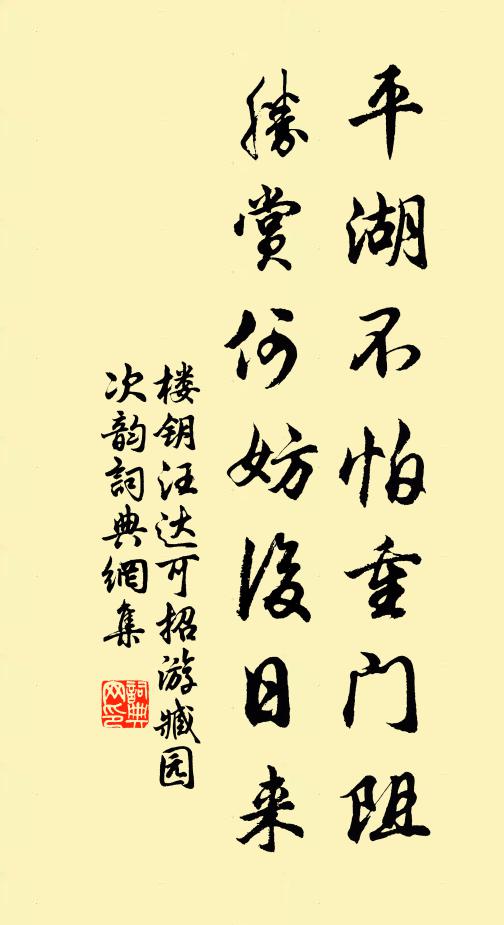 平湖不怕重门阻
胜赏何妨後日来
楼钥汪达可招游臧园
次韵詞典網集
詞典网印